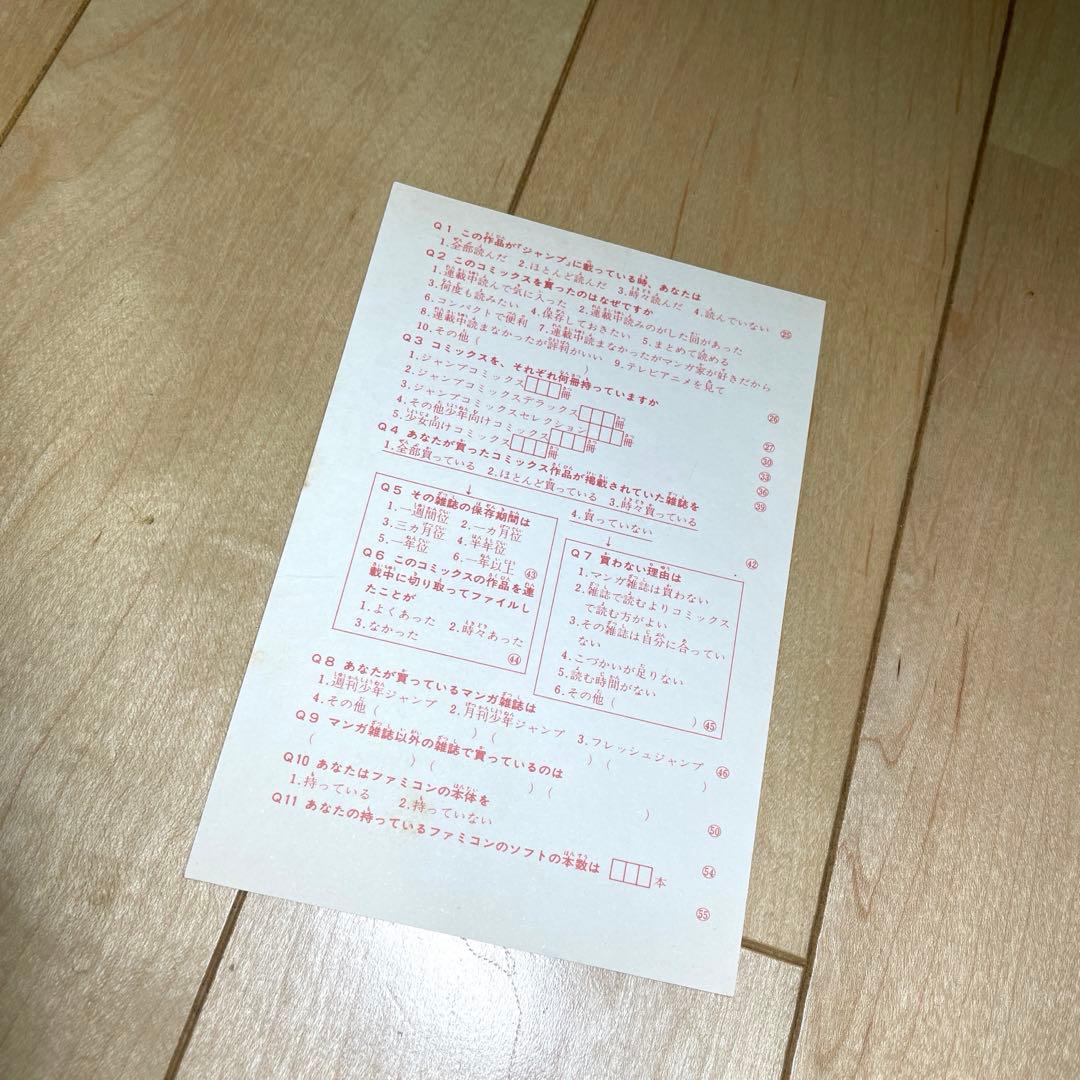 Q1 この作品が『ジャンプ』に載っている時、あなたは
1.全部読んだ 2.ほとんど読んだ 3.時々読んだ 4.読んでいない ㉕
Q2 このコミックスを買ったのはなぜですか
1.連載中読んで気に入った 2.連載中読みのがした回があった
3.何度も読みたい 4.保存しておきたい 5.まとめて読める
6.コンパクトで便利 7.連載中読まなかったがマンガ家が好きだから
8.連載中読まなかったが評判がいい 9.テレビアニメを見て
10.その他( ) ㉖
Q3 コミックスを、それぞれ何冊持っていますか
1.ジャンプコミックス 冊 ㉗
2.ジャンプコミックスデラックス 冊 ㉚
3.ジャンプコミックスセレクション 冊 ㉝
4.その他少年向けコミックス 冊 ㊱
5.少女向けコミックス 冊 ㊴
Q4 あなたが買ったコミックス作品が掲載されていた雑誌を
1.全部買っている 2.ほとんど買っている 3.時々買っている
4.買っていない ㊷
↓
Q5 その雑誌の保存期間は
1.一週間位 2.一カ月位
3.三カ月位 4.半年位
5.一年位 6.一年以上 ㊸
Q6 このコミックスの作品を連
載中に切り取ってファイルし
たことが
1.よくあった 2.時々あった
3.なかった ㊹
↓
Q7 買わない理由は
1.マンガ雑誌は買わない
2.雑誌で読むよりコミックス
で読む方がよい
3.その雑誌は自分に合ってい
ない
4.こづかいが足りない
5.読む時間がない
6.その他( ) ㊺
Q8 あなたが買っているマンガ雑誌は
1.週刊少年ジャンプ 2.月刊少年ジャンプ 3.フレッシュジャンプ
4.その他( )( )( ) ㊻
Q9 マンガ雑誌以外の雑誌で買っているのは
( )( )( ) ㊿
Q10 あなたはファミコンの本体を
1.持っている 2.持っていない 54
Q11 あなたの持っているファミコンのソフトの本数は 本 55